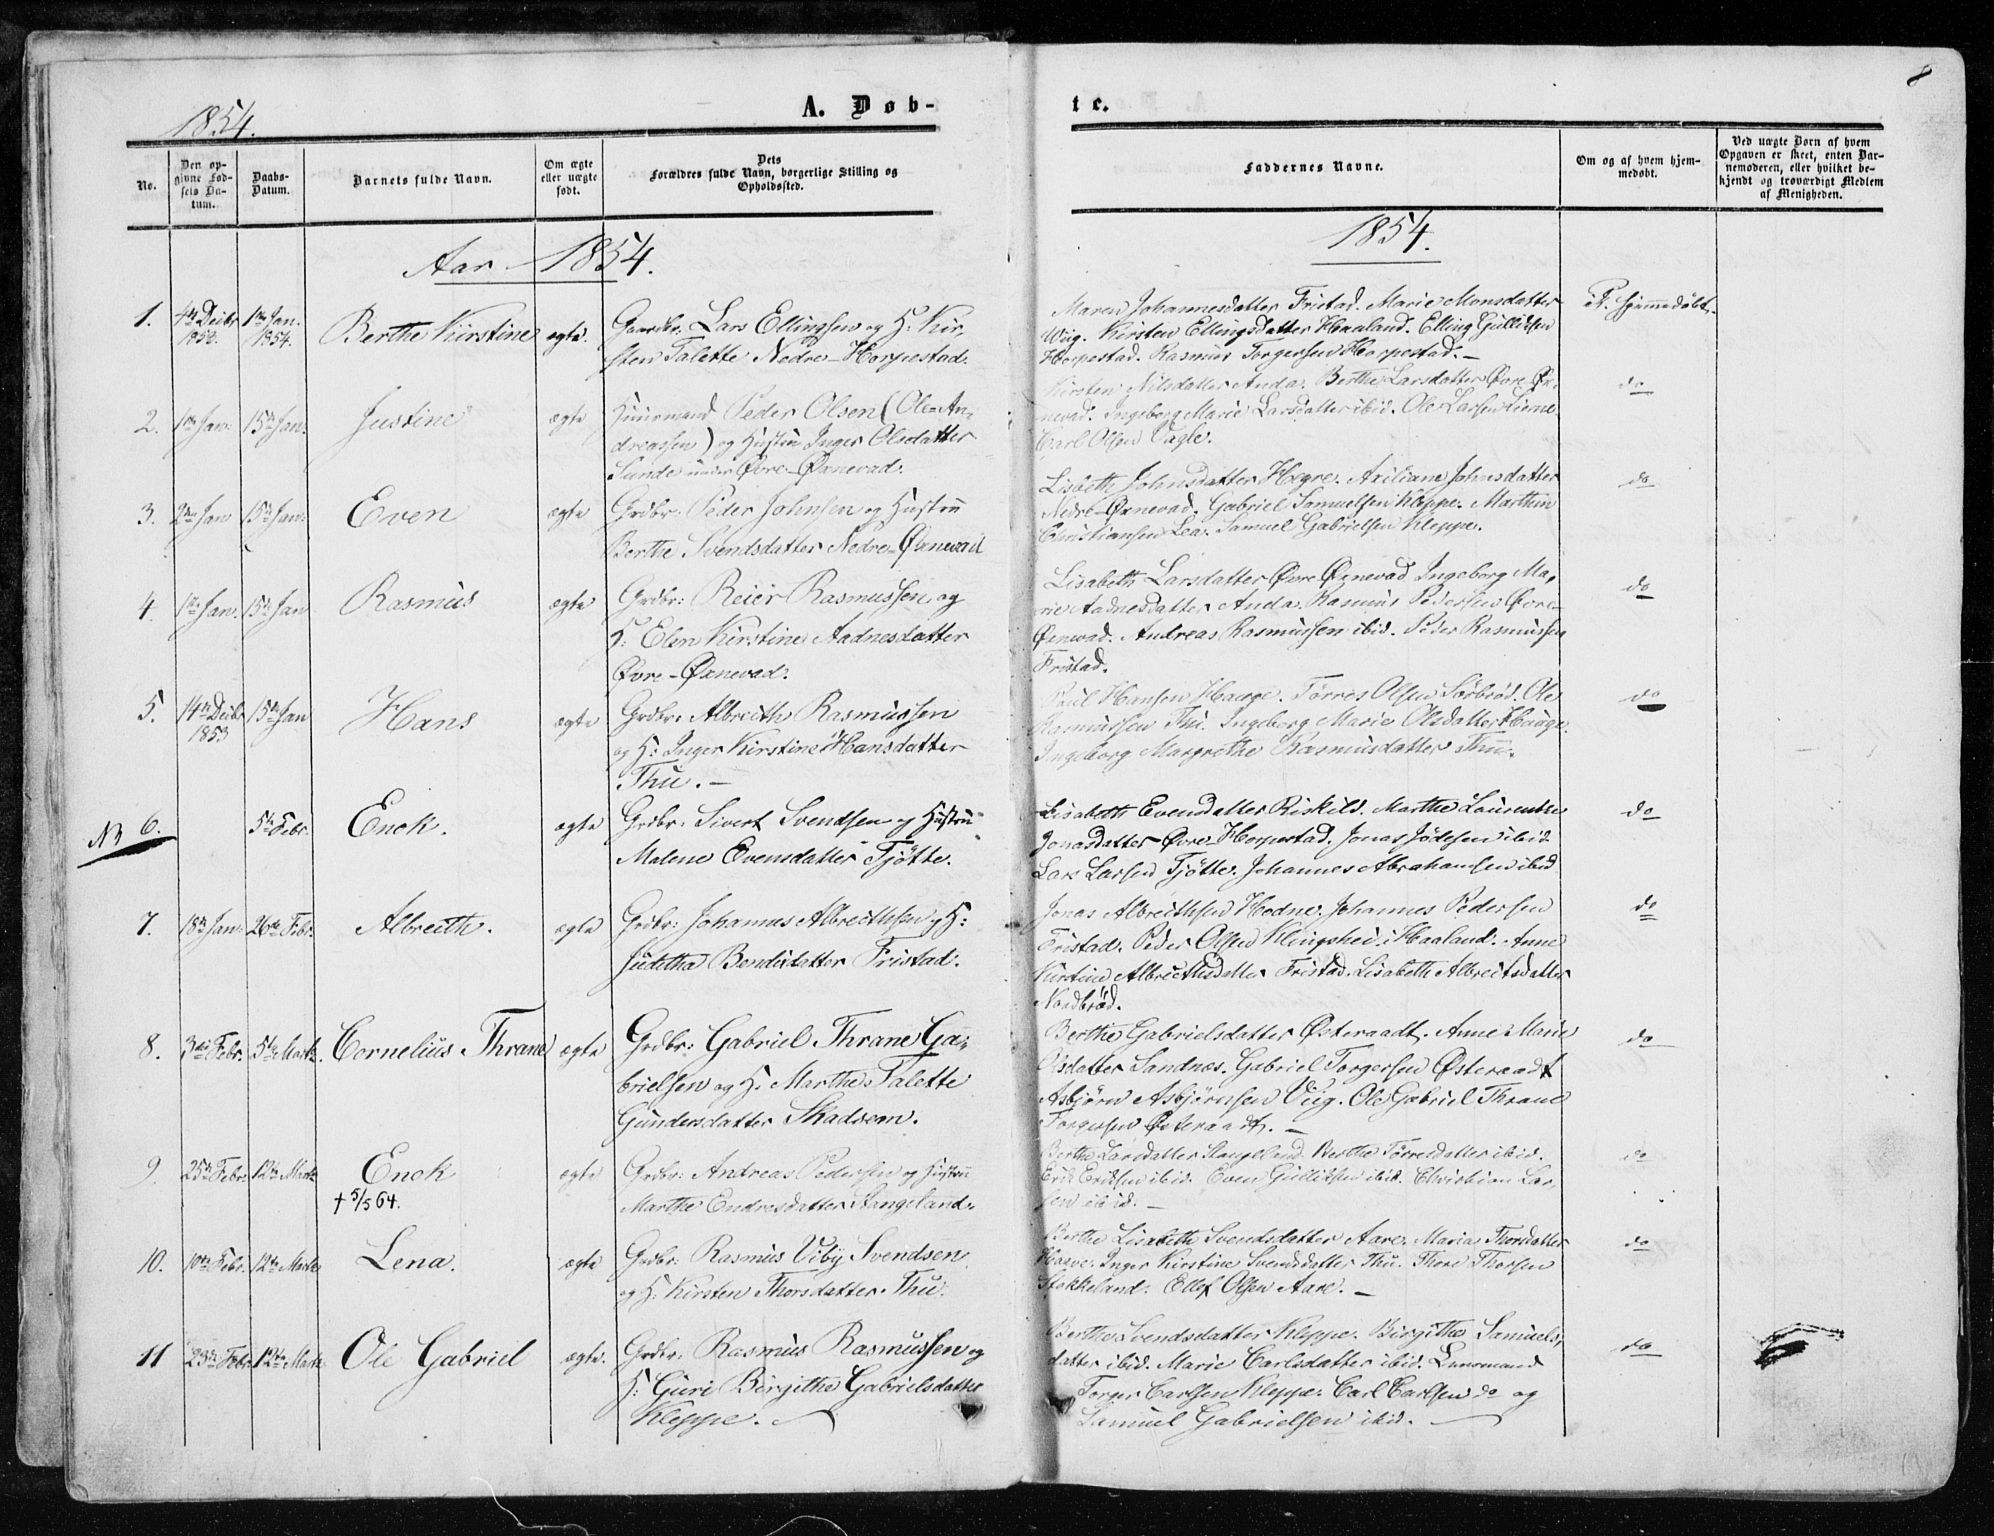 8
1854.
A. Døb-
te.
No.
Den op-
givne Fød-
sels Da-
tum.
Daabs-
Datum.
Barnets fulde Navn.
Om ægte
eller uægte
født.
Dets
Forældres fulde Navn, borgerlige Stilling og
Opholdssted.
Faddernes Navne.
Om og af hvem hjem-
medøbt.
Ved uægte Børn af hvem
Opgaven er skeet, enten Bar-
nemoderen, eller hvilket be-
kjendt og troværdigt Medlem
af Menigheden.
Aar 1854.
1854.
1. 4de Decbr 1853. 1ste Jan. 1854. Berthe Kirstine ægte.
Gaardbr. Lars Ellingsen og H: Kir-
sten Talette Nedre-Horpestad.
Maren Johannesdatter Fristad. Marie Monsdatter
Wiig. Kirsten Ellingsdatter Haaland. Elling Gullidsen
Horpestad. Rasmus Torgersen Horpestad.–
hjemmedøbt.
2. 1ste Jan: 15de Jan: Justine ægte
Huusmand Peder Olsen (Ole An-
dreassen) og Hustru Inger Olsdatter
Sunde under Øvre-Øxnevad.
Kirsten Nilsdatter Anda. Berthe Larsdatter Øvre Øx-
nevad. Ingeborg Marie Larsdatter ibid. Ole Larsen
Carl Olsen Vagle.
do
3. 2den Jan 15de Jan: Even ægte
Grdbr: Peder Johnsen og Hustru
Berthe Svendsdatter Nedre-Øxnevad
Lisbeth Johnsdatter Hogre. Axiliane Johnsdatter
Nedre-Øxnevad. Gabriel Samuelsen Kleppe. Marthin
Christiansen Lea. Samuel Gabrielsen Kleppe.
do
4. 1ste Jan: 15de Jan Rasmus ægte
Grdbr: Reier Rasmussen og
H: Elen Kirstine Aadnesdatter
Øvre-Øxnevad.
Lisabeth Larsdatter Øvre Øxnevad Ingeborg Ma-
rie Aadnesdatter Anda. Rasmus Pedersen Øvre-
Øxnevad. Andreas Rasmussen ibid. Peder Rasmussen
Fristad.
do
5. 14de Decbr 1853 15de Jan Hans ægte
Grdbr: Albreith Rasmussen
og H: Inger Kirstine Hansdatter
Thu.–
Poul Hansen Hauge. Tørres Olsen Sørbrød. Ole
Rasmussen Thu. Ingeborg Marie Olsdatter Hauge.
Ingeborg Margrethe Rasmusdatter Thu.
do
6. 5te Febr. Enok. ægte
Grdbr: Sivert Svendsen og Hustru
Malene Evensdatter Tjøtte.
Lisabeth Evensdatter Riskild. Marthe Laurentze
Jonasdatter Øvre-Horpestad. Jonas Jødesen ibid
Lars Larsen Tjøtte. Johannes Abrahamsen ibid
do
7. 18de Jan: 26de Febr. Albreith. ægte
Grdbr: Johannes Albreithsen og H:
Juditha Bendixdatter Fristad.
Jonas Albreithsen Hodne. Johannes Pedersen
Fristad. Peder Olsen Klingshei i Haaland. Anne
Kirstine Albreithsdatter Fristad. Lisabeth Albreitsdatter
Nordbrød.
do
8. 3die Febr. 5te Marts. Cornelius Thrane ægte
Grdbr: Gabriel Thrane Ga-
brielsen og H. Marthe Talette
Gundersdatter Skadsem.
Berthe Gabrielsdatter Østeraadt. Anne Marie
Olsdatter Sandnæs. Gabriel Torgersen Østeraadt
Asbjørn Asbjørnsen Viig. Ole Gabriel Thrane
Torgersen Østeraadt.–
do
9. 25de Febr. 12te Marts Enok ægte
† 5/5 64.
Grdbr: Andreas Pedersen og Hustru
Marthe Endresdatter Stangeland.
Berthe Larsdatter Stangeland. Berthe Tørresdatter ibid.
Erik Eriksen ibid. Even Gullidsen ibid. Christian Lar-
sen ibid.–
do
10. 10de Febr. 12te Marts Lena. ægte
Grdbr: Rasmus Viby Svendsen
og H: Kirsten Thorsdatter Thu.
Berthe Lisabeth Svendsdatter Aare. Maria Thorsdatter
Haave. Inger Kirstine Svendsdatter Thu. Thore Thorsen
Stokkeland. Ellef Olsen Aare.–
do
11 23de Febr. 12te Marts Ole Gabriel ægte.
Grdbr: Rasmus Rasmussen og
H: Guri Birgithe Gabrielsdatter
Kleppe.–
Berthe Svendsdatter Kleppe. Birgithe Samuels-
datter ibid. Marie Carlsdatter ibid. Lensmand
Torger Carlsen Kleppe. Carl Carlsen do og
Samuel Gabrielsen ibid.–
do